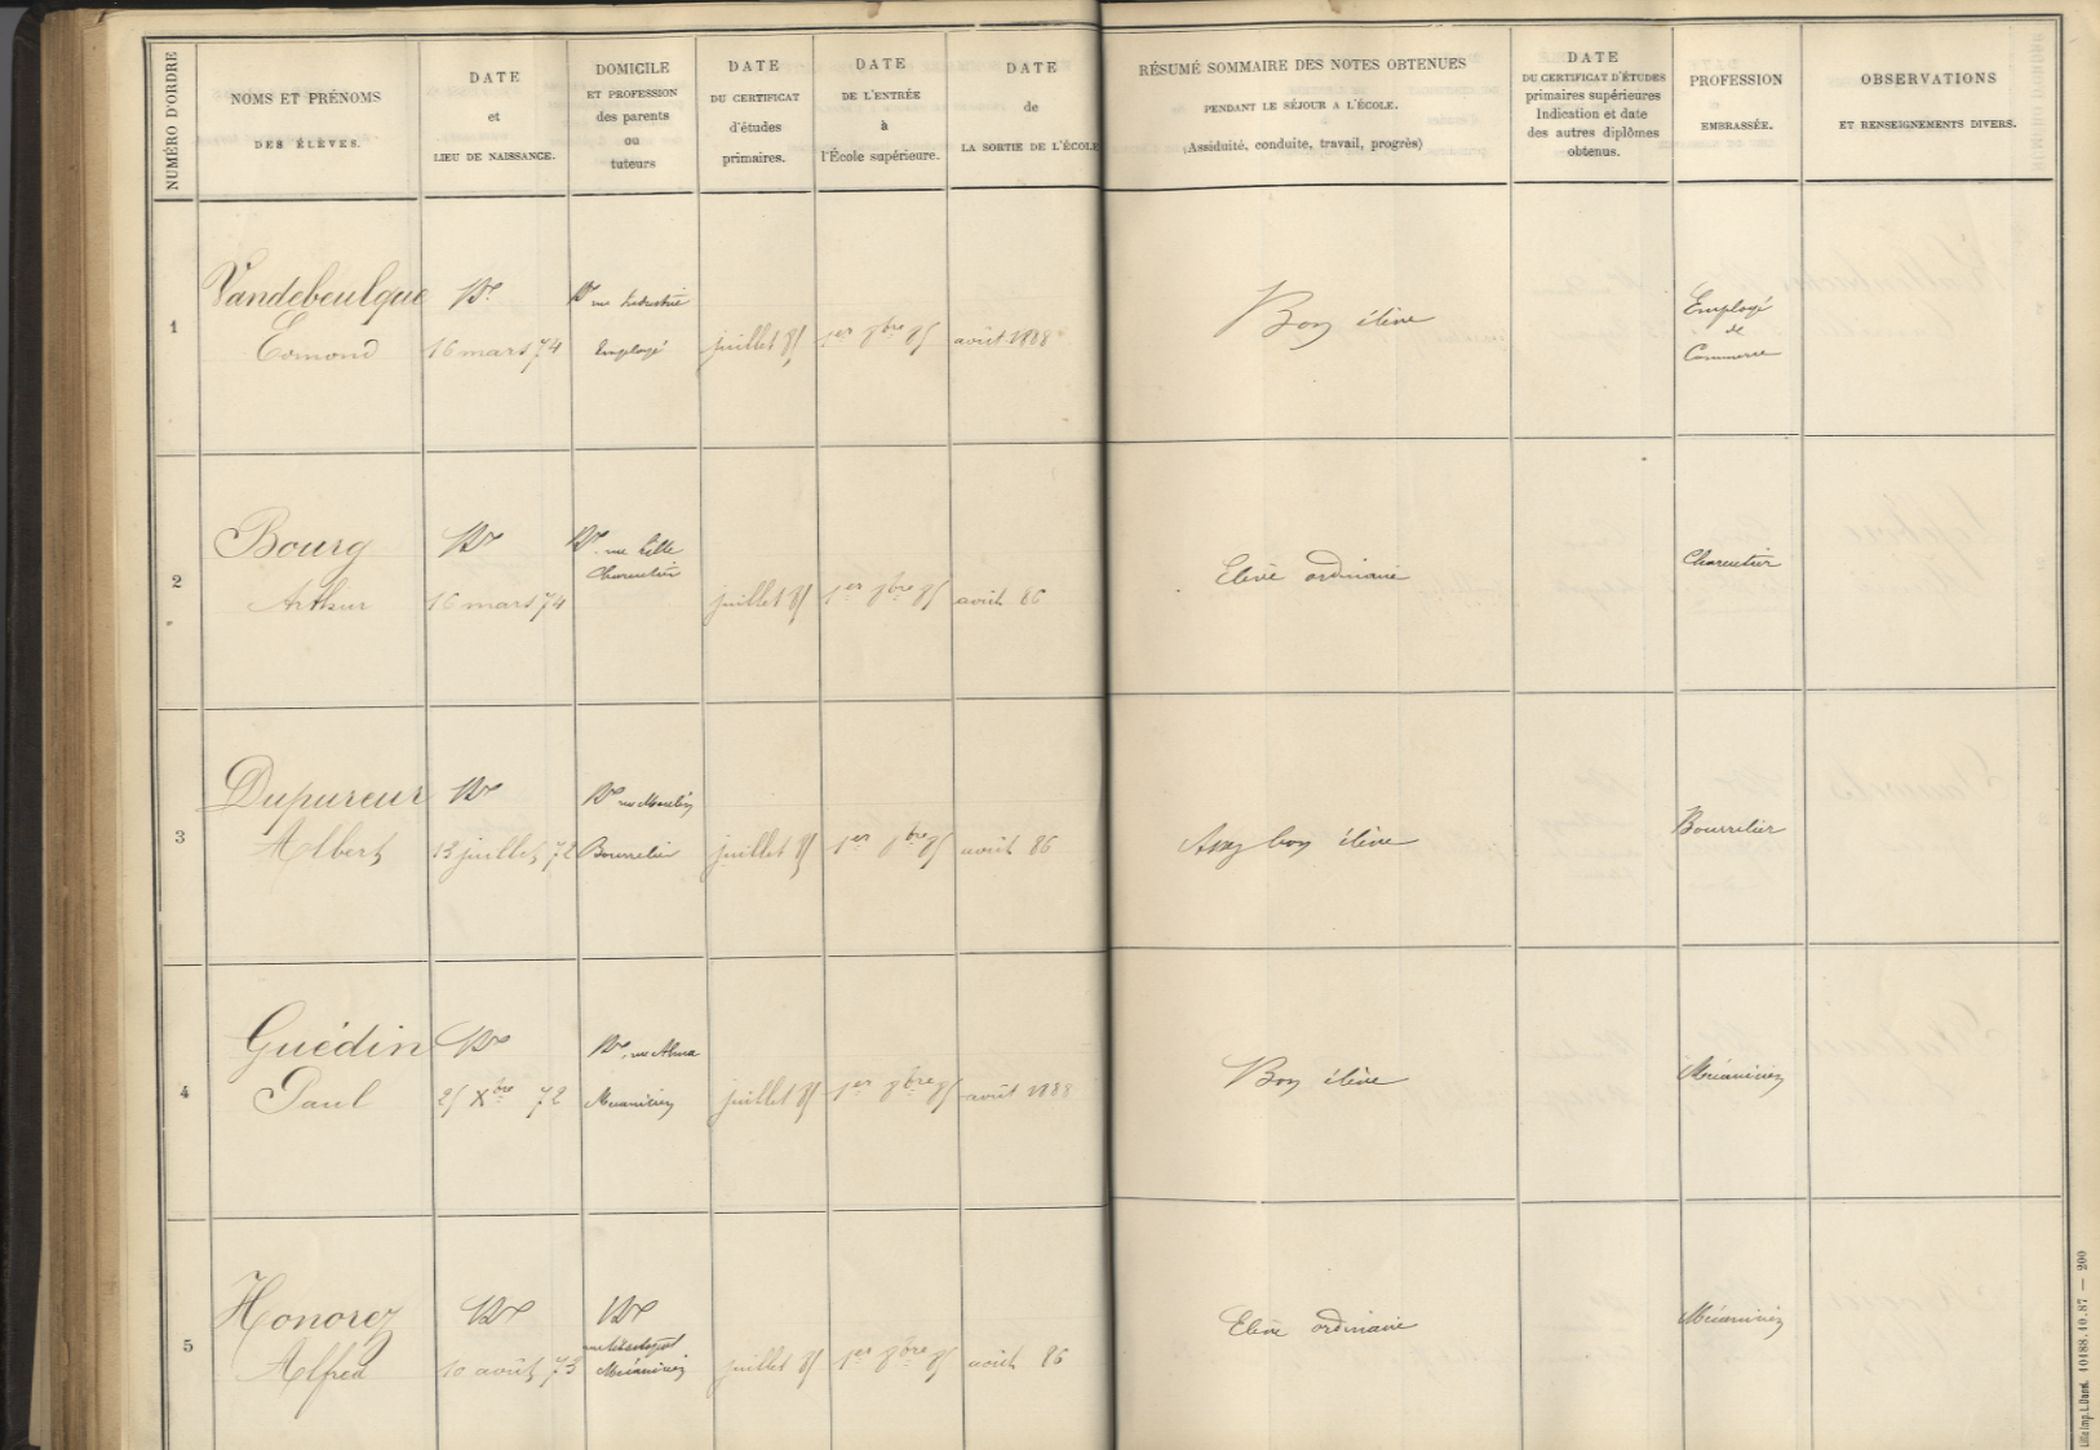 NUMÉRO D'ORDRE
NOMS ET PRÉNOMS
DES ÉLÈVES.
DATE
et
LIEU DE NAISSANCE.
DOMICILE
ET PROFESSION
des parents
ou
tuteurs
DATE
DU CERTIFICAT
d'études
primaires.
DATE
DE L'ENTRÉE
à
l'École supérieure.
DATE
de
LA SORTIE DE L'ÉCOLE
RÉSUMÉ SOMMAIRE DES NOTES OBTENUES
PENDANT LE SÉJOUR A L'ÉCOLE.
(Assiduité, conduite, travail, progrès)
DATE
DU CERTIFICAT D'ÉTUDES
primaires supérieures
Indication et date
des autres diplômes
obtenus.
PROFESSION
EMBRASSÉE.
OBSERVATIONS
ET RENSEIGNEMENTS DIVERS.
1
Vandebeulque
Edmond
16 mars 74
rue Industrie
Employé
juillet 85
1er 8bre 85
août 1888
Bon élève
Employé
de
Commerce
2
Bourg
Arthur
16 mars 74
rue Lille
Charcutier
juillet 85
1er 8bre 85
août 86
Elève ordinaire
Charcutier
3
Dupureur
Albert
13 juillet 72
rue Moulin
Bourrelier
juillet 85
1er 8bre 85
août 86
Assez bon élève
Bourrelier
4
Guédin
Paul
25 Xbre 72
rue Alma
Mécanicien
juillet 85
1er 8bre 85
août 1888
Bon élève
Mécanicien
5
Honorez
Alfred
10 août 73
Mécanicien
juillet 85
1er 8bre 85
août 86
Elève ordinaire
Mécanicien
Lille Imp. L. Danel. 10188.10.87 — 200